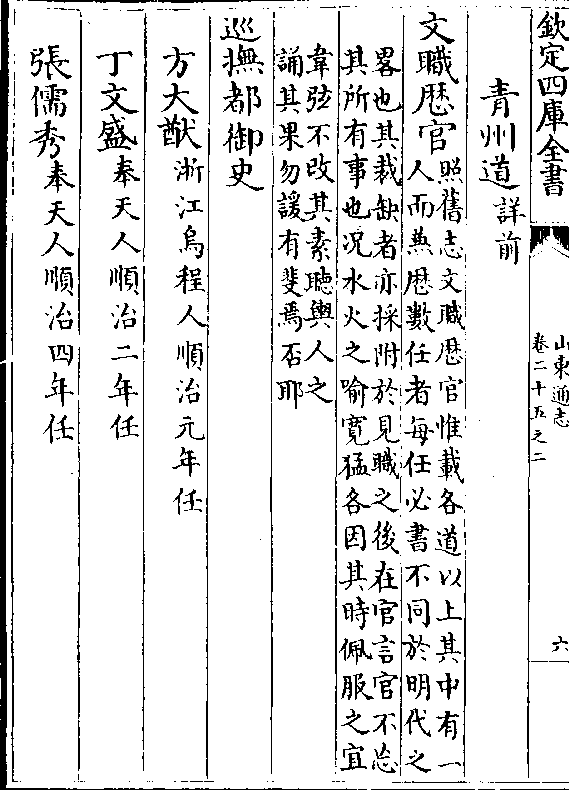 欽定四庫全書
山東通志
卷二十五之二
六
青州道詳前
文職歴官照舊志文職歴官惟載各道以上其中有一
人而兼歴數任者每任必書不同於明代之
畧也其裁缺者亦採附於見職之後在官言官不忘
其所有事也况水火之喻寛猛各因其時佩服之宜
韋弦不改其素聴輿人之
誦其果勿諼有斐焉否耶
巡撫都御史
方大猷浙江烏程人順治元年任
丁文盛奉天人順治二年任
張儒秀奉天人順治四年任